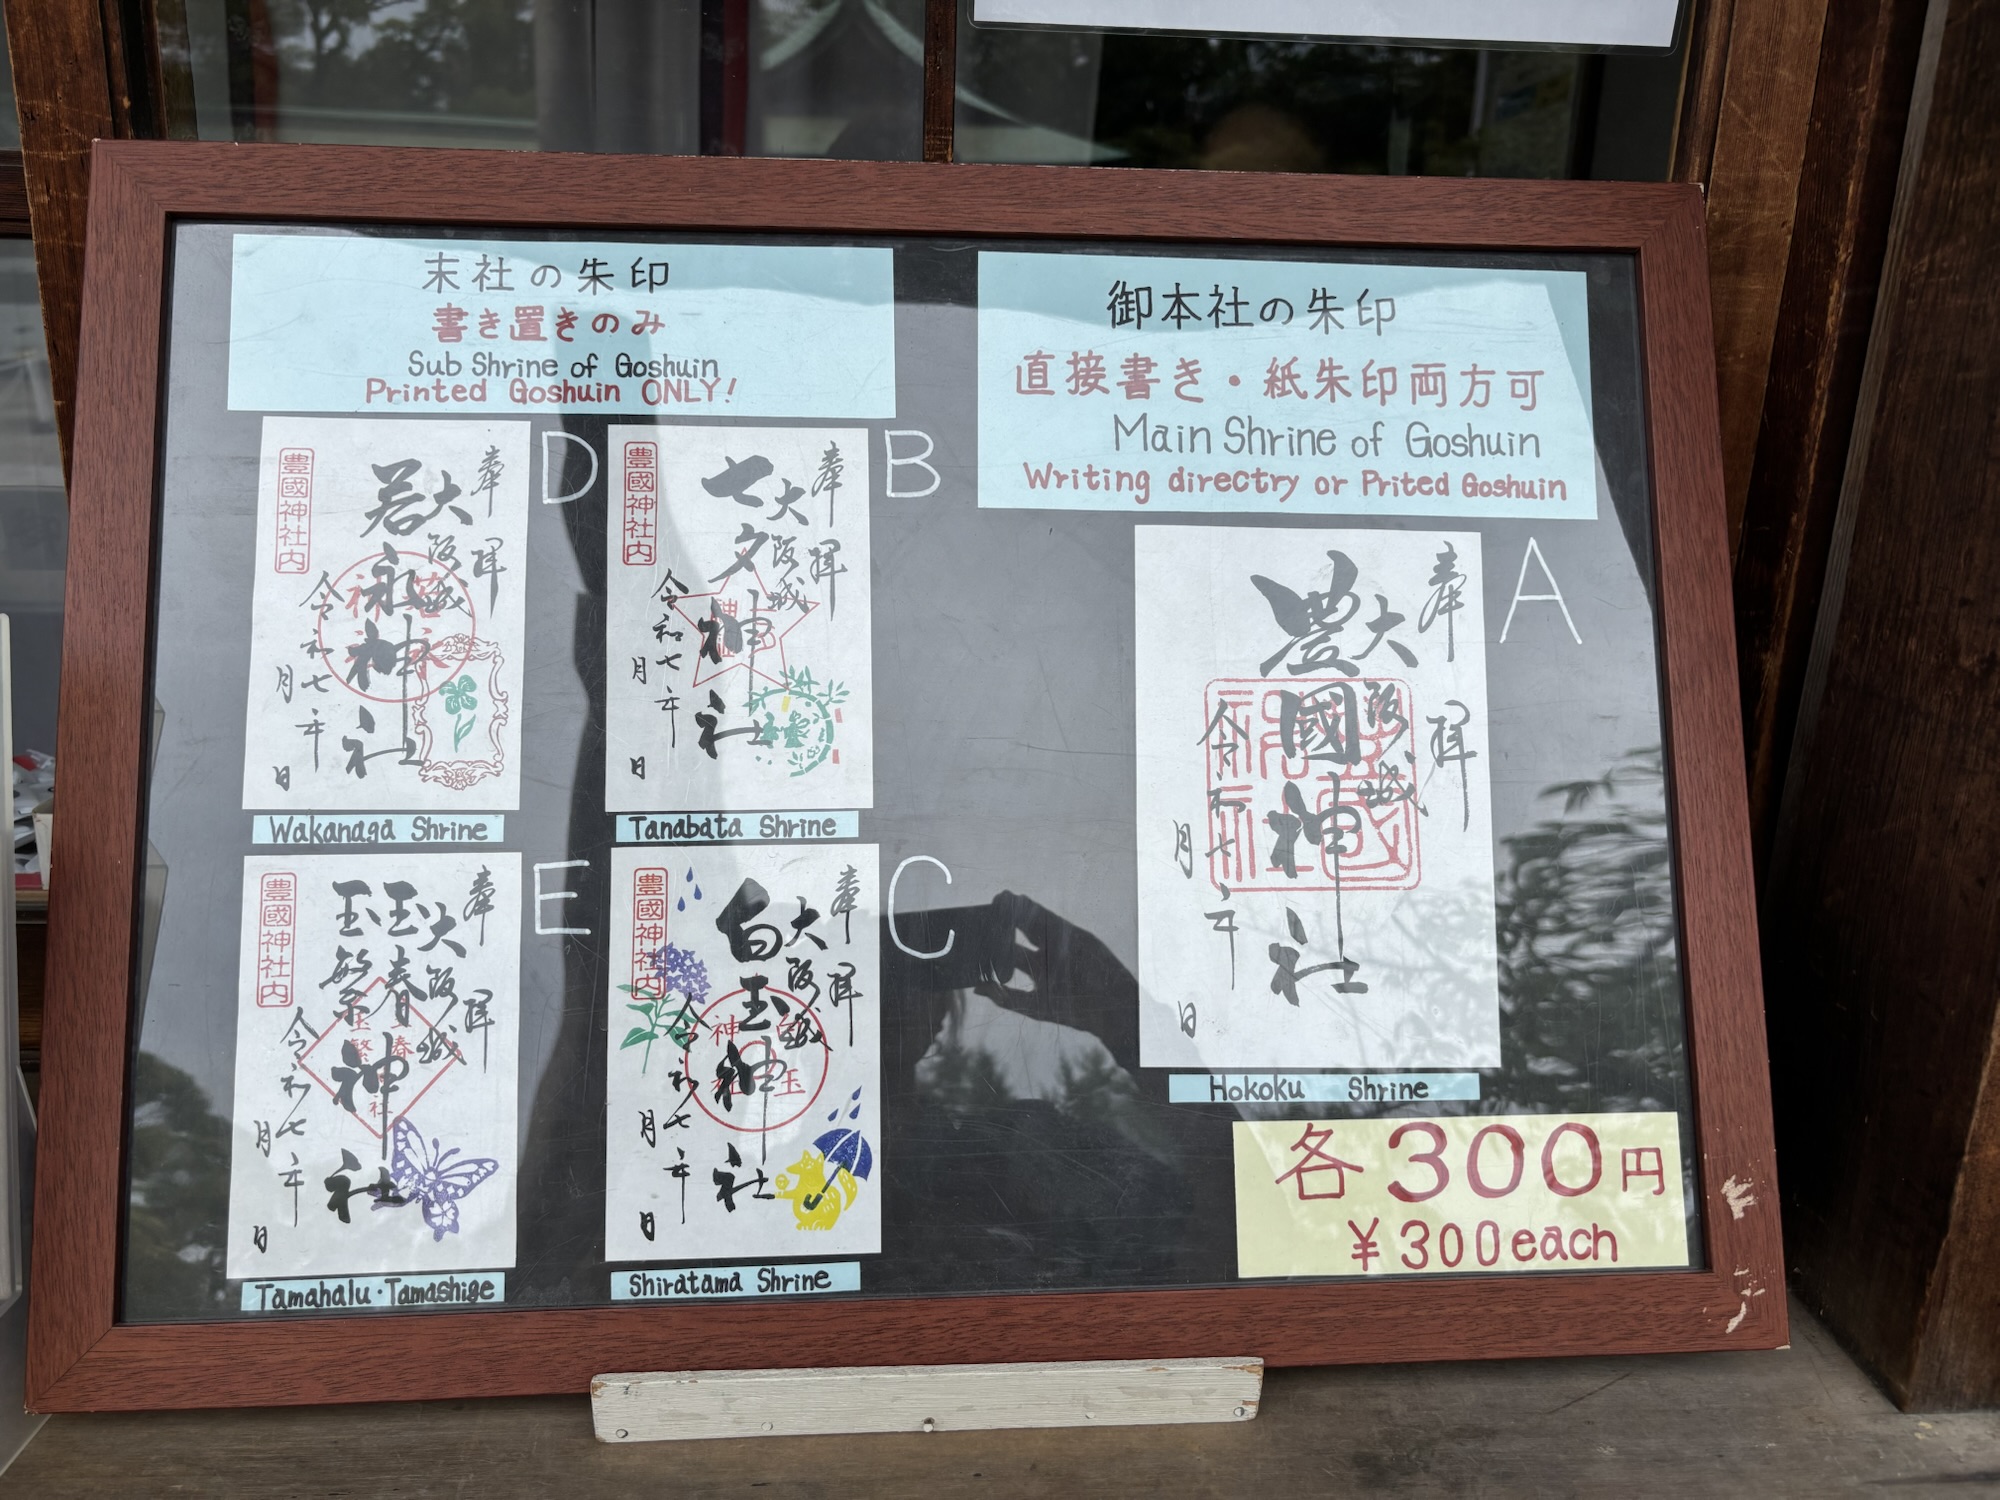 末社の朱印
書き置きのみ
Sub Shrine of Goshuin
Printed Goshuin ONLY!
御本社の朱印
直接書き・紙朱印両方可
Main Shrine of Goshuin
Writing directry or Prited Goshuin
A
奉拝
大阪城
豊國神社
令和七年
月
日
Hokoku Shrine
B
奉拝
大阪城
七夕神社
令和七年
月
日
豊國神社内
Tanabata Shrine
C
奉拝
大阪城
白玉神社
令和七年
月
日
豊國神社内
Shiratama Shrine
D
奉拝
大阪城
若永神社
令和七年
月
日
豊國神社内
Wakanaga Shrine
E
奉拝
大阪城
玉春
玉繁
神社
令和七年
月
日
豊國神社内
Tamahalu・Tamashige
各300円
¥300each